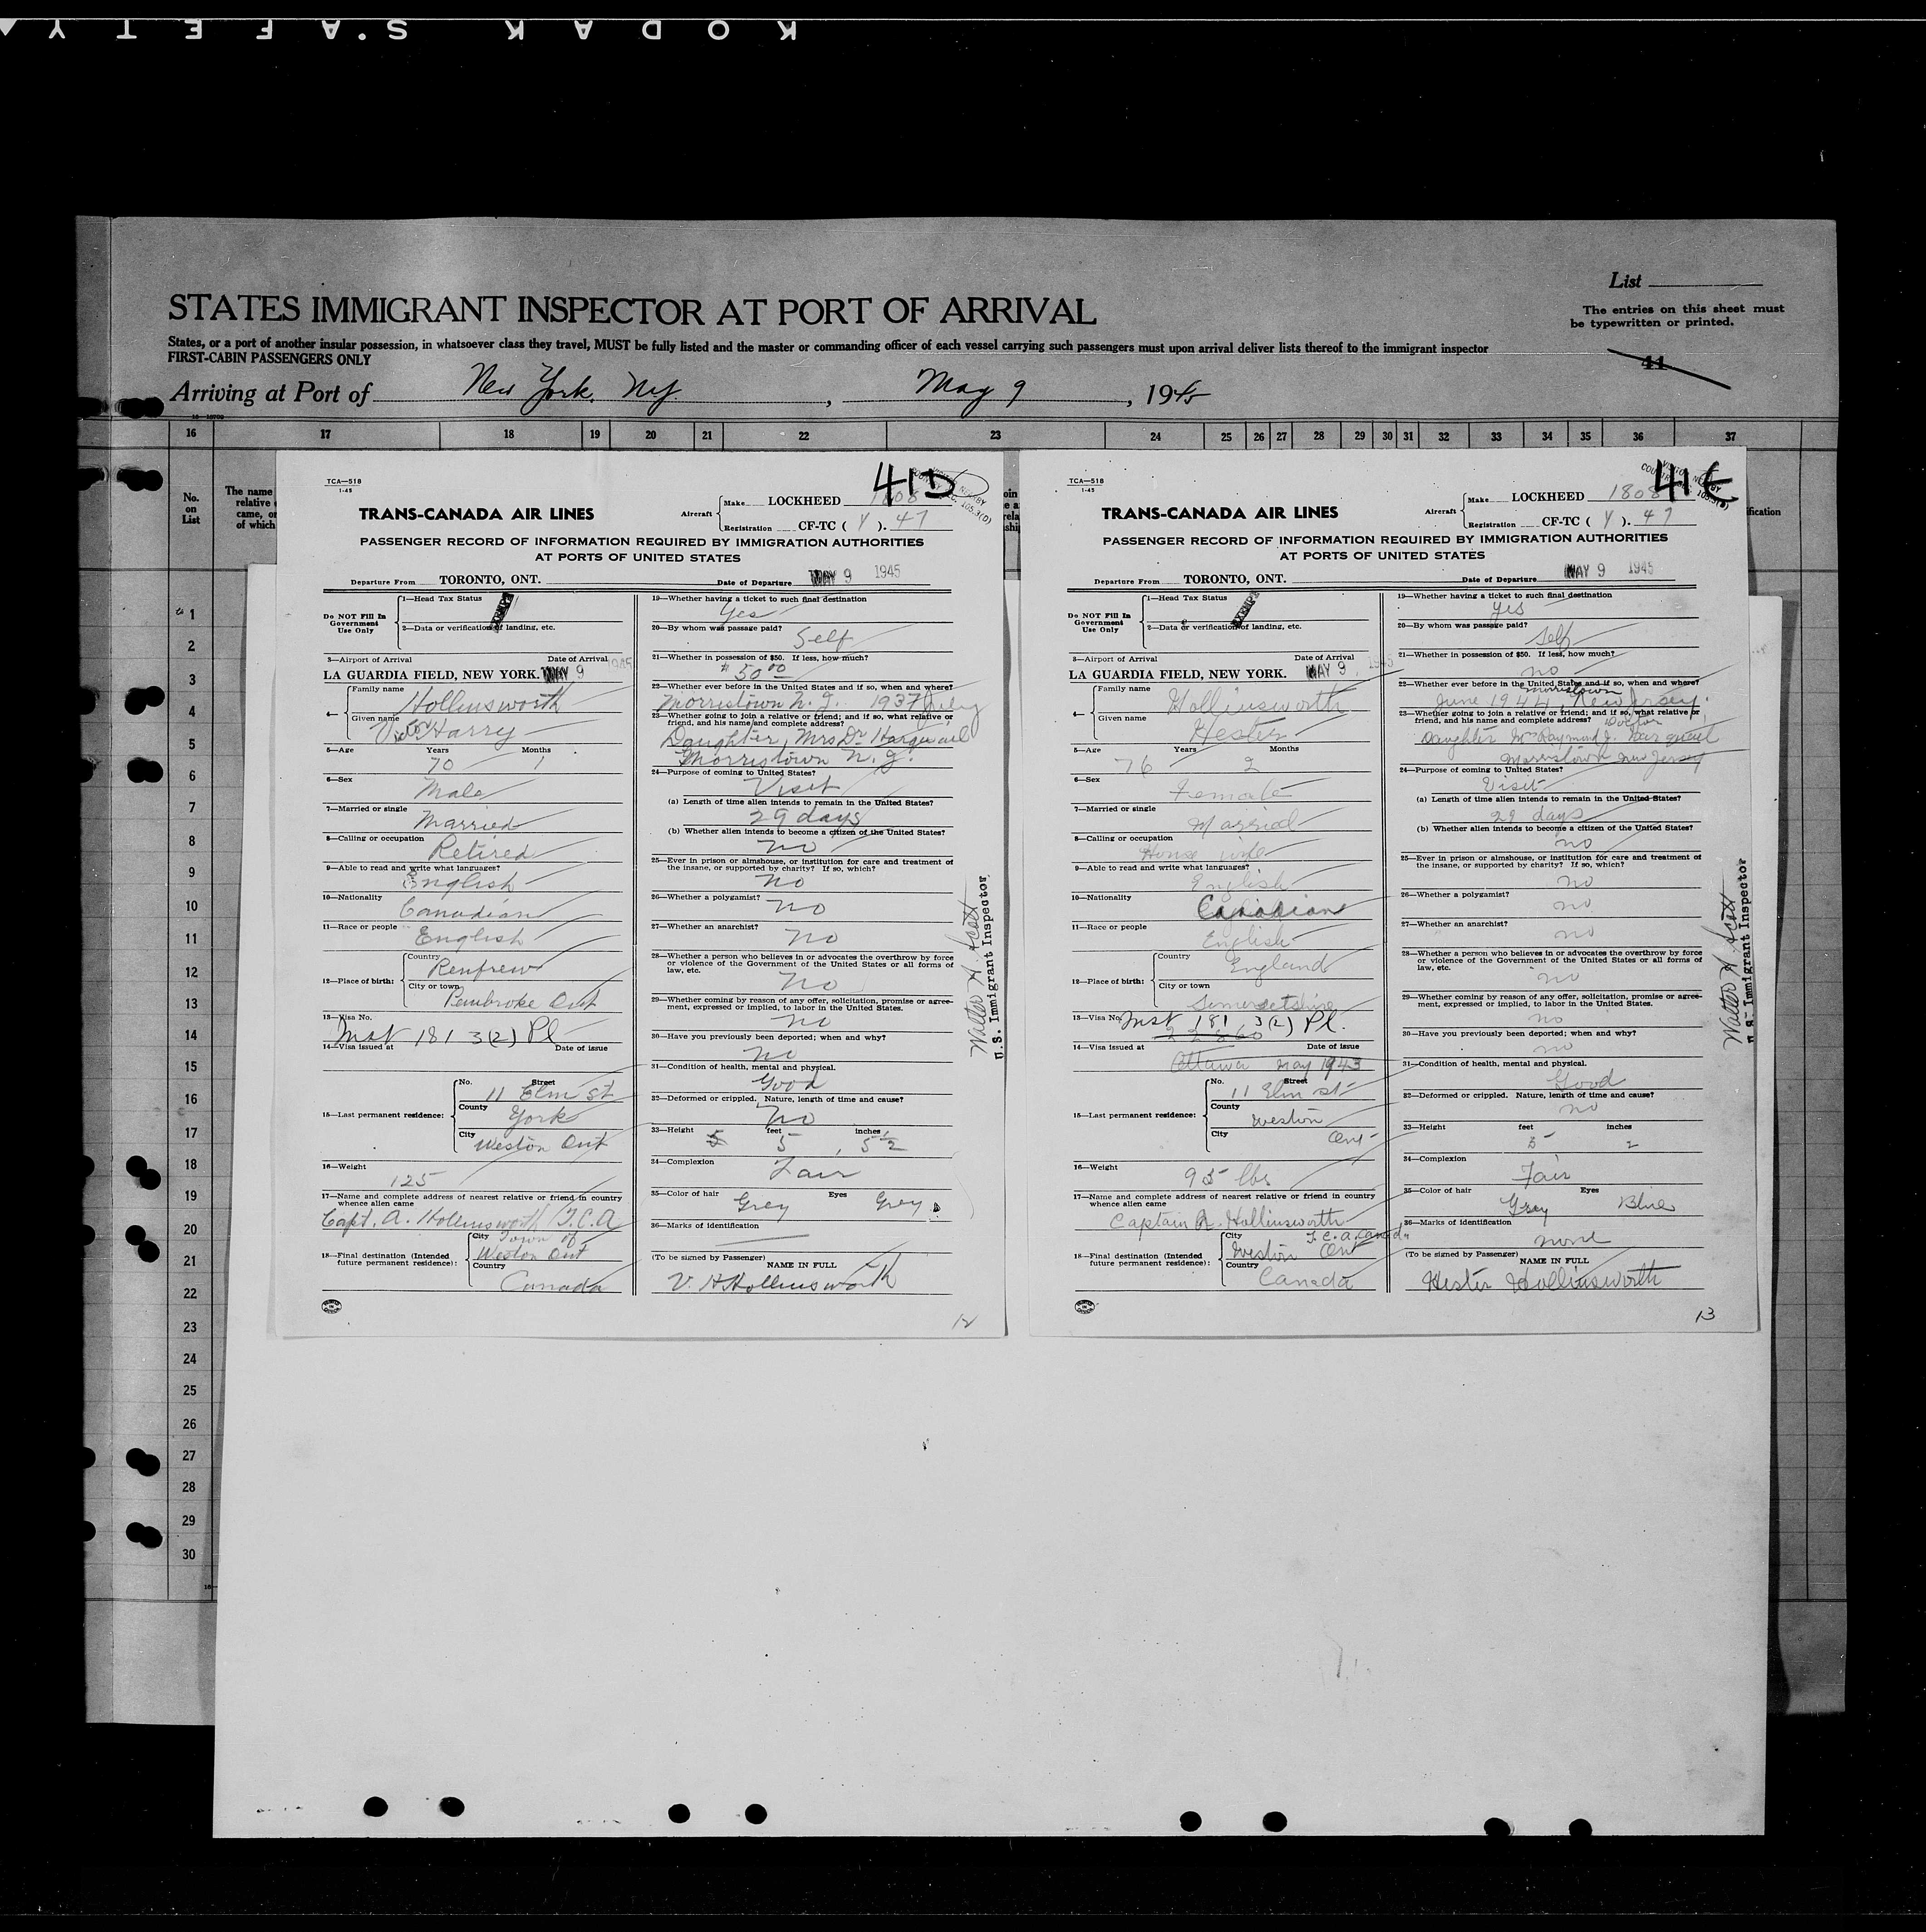 KODAK SAFETY
List
STATES IMMIGRANT INSPECTOR AT PORT OF ARRIVAL
The entries on this sheet must
be typewritten or printed.
States, or a port of another insular possession, in whatsoever class they travel, MUST be fully listed and the master or commanding officer of each vessel carrying such passengers must upon arrival deliver lists thereof to the immigrant inspector
FIRST-CABIN PASSENGERS ONLY
41
Arriving at Port of New York, N.Y. , May 9 , 1945
16 17 18 19 20 21 22 23 24 25 26 27 28 29 30 31 32 33 34 35 36 37
No.
on
List
The name
relative
came, or
of which
1
2
3
4
5
6
7
8
9
10
11
12
13
14
15
16
17
18
19
20
21
22
23
24
25
26
27
28
29
30
TCA—518
1-45
41D
Aircraft
Make LOCKHEED 1808
Registration CF-TC ( Y ). 47
TRANS-CANADA AIR LINES
PASSENGER RECORD OF INFORMATION REQUIRED BY IMMIGRATION AUTHORITIES
AT PORTS OF UNITED STATES
Departure From TORONTO, ONT. Date of Departure MAY 9 1945
Do NOT Fill In
Government
Use Only
1—Head Tax Status
2—Data or verification of landing, etc.
EXEMPT
3—Airport of Arrival Date of Arrival
LA GUARDIA FIELD, NEW YORK. MAY 9 1945
4— Family name Hollinsworth
Given name Victor Harry
5—Age Years Months
70 1
6—Sex
Male
7—Married or single
Married
8—Calling or occupation
Retired
9—Able to read and write what languages?
English
10—Nationality
Canadian
11—Race or people
English
12—Place of birth: Country Renfrew
City or town Pembroke Ont
13—Visa No.
Inst 181 3(2) Pl
14—Visa issued at Date of issue
15—Last permanent residence: No. Street
11 Elm St
County York
City Weston Ont
16—Weight
125
17—Name and complete address of nearest relative or friend in country
whence alien came
Capt. A. Hollinsworth T.C.A
18—Final destination (Intended
future permanent residence):
City Town of
Weston Ont
Country
Canada
19—Whether having a ticket to such final destination
Yes
20—By whom was passage paid?
Self
21—Whether in possession of $50. If less, how much?
$50.00
22—Whether ever before in the United States and if so, when and where?
Morristown N.J. 1937 July
23—Whether going to join a relative or friend; and if so, what relative or
friend, and his name and complete address?
Daughter, Mrs Dr
Morristown N.J.
24—Purpose of coming to United States?
Visit
(a) Length of time alien intends to remain in the United States?
29 days
(b) Whether alien intends to become a citizen of the United States?
no
25—Ever in prison or almshouse, or institution for care and treatment of
the insane, or supported by charity? If so, which?
no
26—Whether a polygamist?
no
27—Whether an anarchist?
no
28—Whether a person who believes in or advocates the overthrow by force
or violence of the Government of the United States or all forms of
law, etc.
No
29—Whether coming by reason of any offer, solicitation, promise or agree-
ment, expressed or implied, to labor in the United States.
no
30—Have you previously been deported; when and why?
no
31—Condition of health, mental and physical.
Good
32—Deformed or crippled. Nature, length of time and cause?
No
33—Height feet inches
5 5 5½
34—Complexion
Fair
35—Color of hair Eyes
Grey Grey
36—Marks of identification
(To be signed by Passenger)
NAME IN FULL
V. H Hollinsworth
12
Walter H. Scott
U.S. Immigrant Inspector
TCA—518
1-45
41E
Aircraft
Make LOCKHEED 1808
Registration CF-TC ( Y ). 47
TRANS-CANADA AIR LINES
PASSENGER RECORD OF INFORMATION REQUIRED BY IMMIGRATION AUTHORITIES
AT PORTS OF UNITED STATES
Departure From TORONTO, ONT. Date of Departure MAY 9 1945
Do NOT Fill In
Government
Use Only
1—Head Tax Status
2—Data or verification of landing, etc.
EXEMPT
3—Airport of Arrival Date of Arrival
LA GUARDIA FIELD, NEW YORK. MAY 9 1945
4— Family name Hollinsworth
Given name Hester
5—Age Years Months
76 2
6—Sex
Female
7—Married or single
Married
8—Calling or occupation
House wife
9—Able to read and write what languages?
English
10—Nationality
Canadian
11—Race or people
English
12—Place of birth: Country England
City or town
Somersetshire
13—Visa No. Inst 181 3(2) Pl.
14—Visa issued at Date of issue
Ottawa May 1943
15—Last permanent residence: No. Street
11 Elm st
County
Weston
City Ont
16—Weight
95 lbs
17—Name and complete address of nearest relative or friend in country
whence alien came
Captain A. Hollinsworth
T.C.A. Canada
18—Final destination (Intended
future permanent residence):
City
Weston Ont
Country
Canada
19—Whether having a ticket to such final destination
yes
20—By whom was passage paid?
Self
21—Whether in possession of $50. If less, how much?
no
22—Whether ever before in the United States and if so, when and where?
Morristown
June 1944, New Jersey.
23—Whether going to join a relative or friend; and if so, what relative or
friend, and his name and complete address? Doctor
Daughter Mrs Raymond J.
Morristown New Jersey
24—Purpose of coming to United States?
Visit
(a) Length of time alien intends to remain in the United States?
29 days
(b) Whether alien intends to become a citizen of the United States?
no
25—Ever in prison or almshouse, or institution for care and treatment of
the insane, or supported by charity? If so, which?
no
26—Whether a polygamist?
no
27—Whether an anarchist?
no
28—Whether a person who believes in or advocates the overthrow by force
or violence of the Government of the United States or all forms of
law, etc.
no
29—Whether coming by reason of any offer, solicitation, promise or agree-
ment, expressed or implied, to labor in the United States.
no
30—Have you previously been deported; when and why?
no
31—Condition of health, mental and physical.
Good
32—Deformed or crippled. Nature, length of time and cause?
no
33—Height feet inches
5 2
34—Complexion
Fair
35—Color of hair Eyes
Grey Blue
36—Marks of identification
none
(To be signed by Passenger)
NAME IN FULL
Hester Hollinsworth
13
Walter H. Scott
U.S. Immigrant Inspector